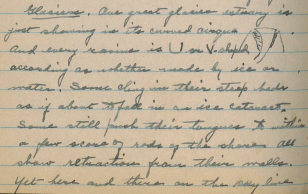 Glaciers. One great glacier estuary is
just showing in its curved cirque
And every ravine is U or V-shaped
according as whether made by ice or
water. Some cling in their steep beds
as if about to fall in an ice cataract.
Some still push their tongues to within
a few score of rods of the shore. All
show retraction from their walls.
Yet here and there on the sky line